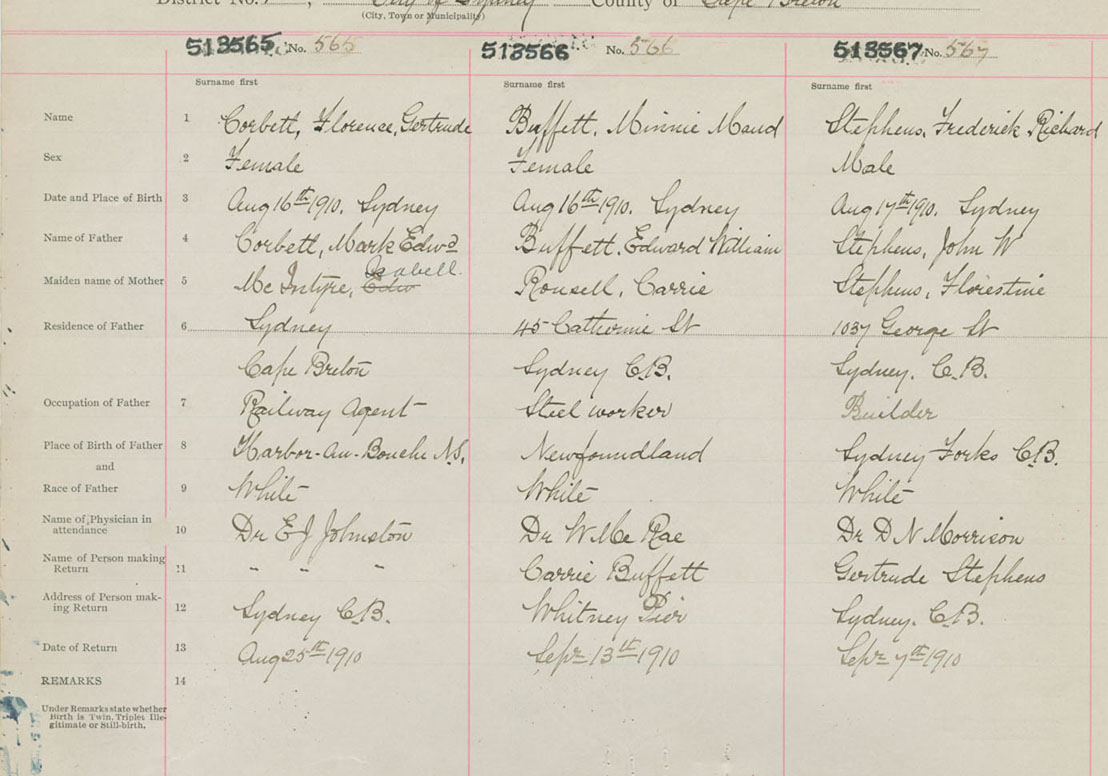 District No. , City of Sydney County of Cape Breton
(City, Town or Municipality)
513565 No. 565 513566 No. 566 513567 No. 567
Surname first Surname first Surname first
Name 1 Corbett, Florence, Gertrude Buffett, Minnie Maud Stephens, Frederick Richard
Sex 2 Female Female Male
Date and Place of Birth 3 Aug 16th 1910. Sydney Aug 16th 1910. Sydney Aug 17th 1910. Sydney
Name of Father 4 Corbett, Mark Edwd Buffett, Edward William Stephens, John W
Isabell
Maiden name of Mother 5 McIntyre, Edw Ronsell, Carrie Stephens, Florestine
Residence of Father 6 Sydney 45 Catherine St 1037 George St
Cape Breton Sydney C.B. Sydney. C.B.
Occupation of Father 7 Railway Agent Steel worker Builder
Place of Birth of Father 8 Harbor-au-Bouche N.S. Newfoundland Sydney Forks C.B.
and
Race of Father 9 White White White
Name of Physician in
attendance 10 Dr E J Johnston Dr W McRae Dr D N Morrison
Name of Person making
Return 11 " " " Carrie Buffett Gertrude Stephens
Address of Person mak-
ing Return 12 Sydney C.B. Whitney Pier Sydney. C.B.
Date of Return 13 Aug 25th 1910 Sepr 13th 1910 Sepr 7th 1910
REMARKS 14
Under Remarks state whether
Birth is Twin, Triplet Ille-
gitimate or Still-birth.